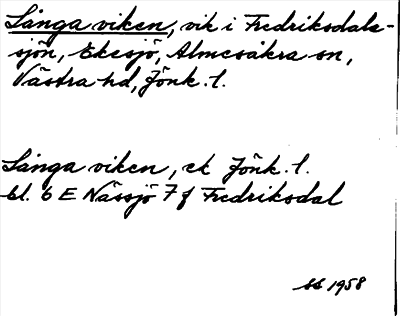 Långa viken, vik i Fredriksdals-
sjön, Ekesjö, Almesåkra sn,
Västra hd, Jönk. l.
Långa viken, ek Jönk. l.
bl. 6 E Nässjö 7 f Fredriksdal
1958